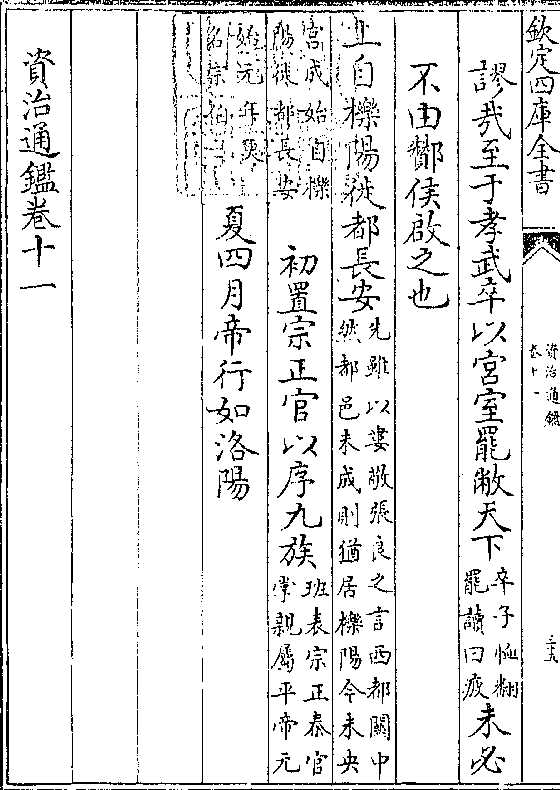 欽定四庫全書
資治通鑑
卷十一
謬哉至于孝武卒以宮室罷敝天下
卒子恤翻
罷讀曰疲
未必
不由酇侯啟之也
上自櫟陽徙都長安
先雖以婁敬張良之言西都關中
然都邑未成則猶居櫟陽今未央
宮成始自櫟
陽徙都長安
初置宗正官以序九族
班表宗正秦官
掌親屬平帝元
始元年更
名宗伯
夏四月帝行如洛陽
資治通鑑卷十一